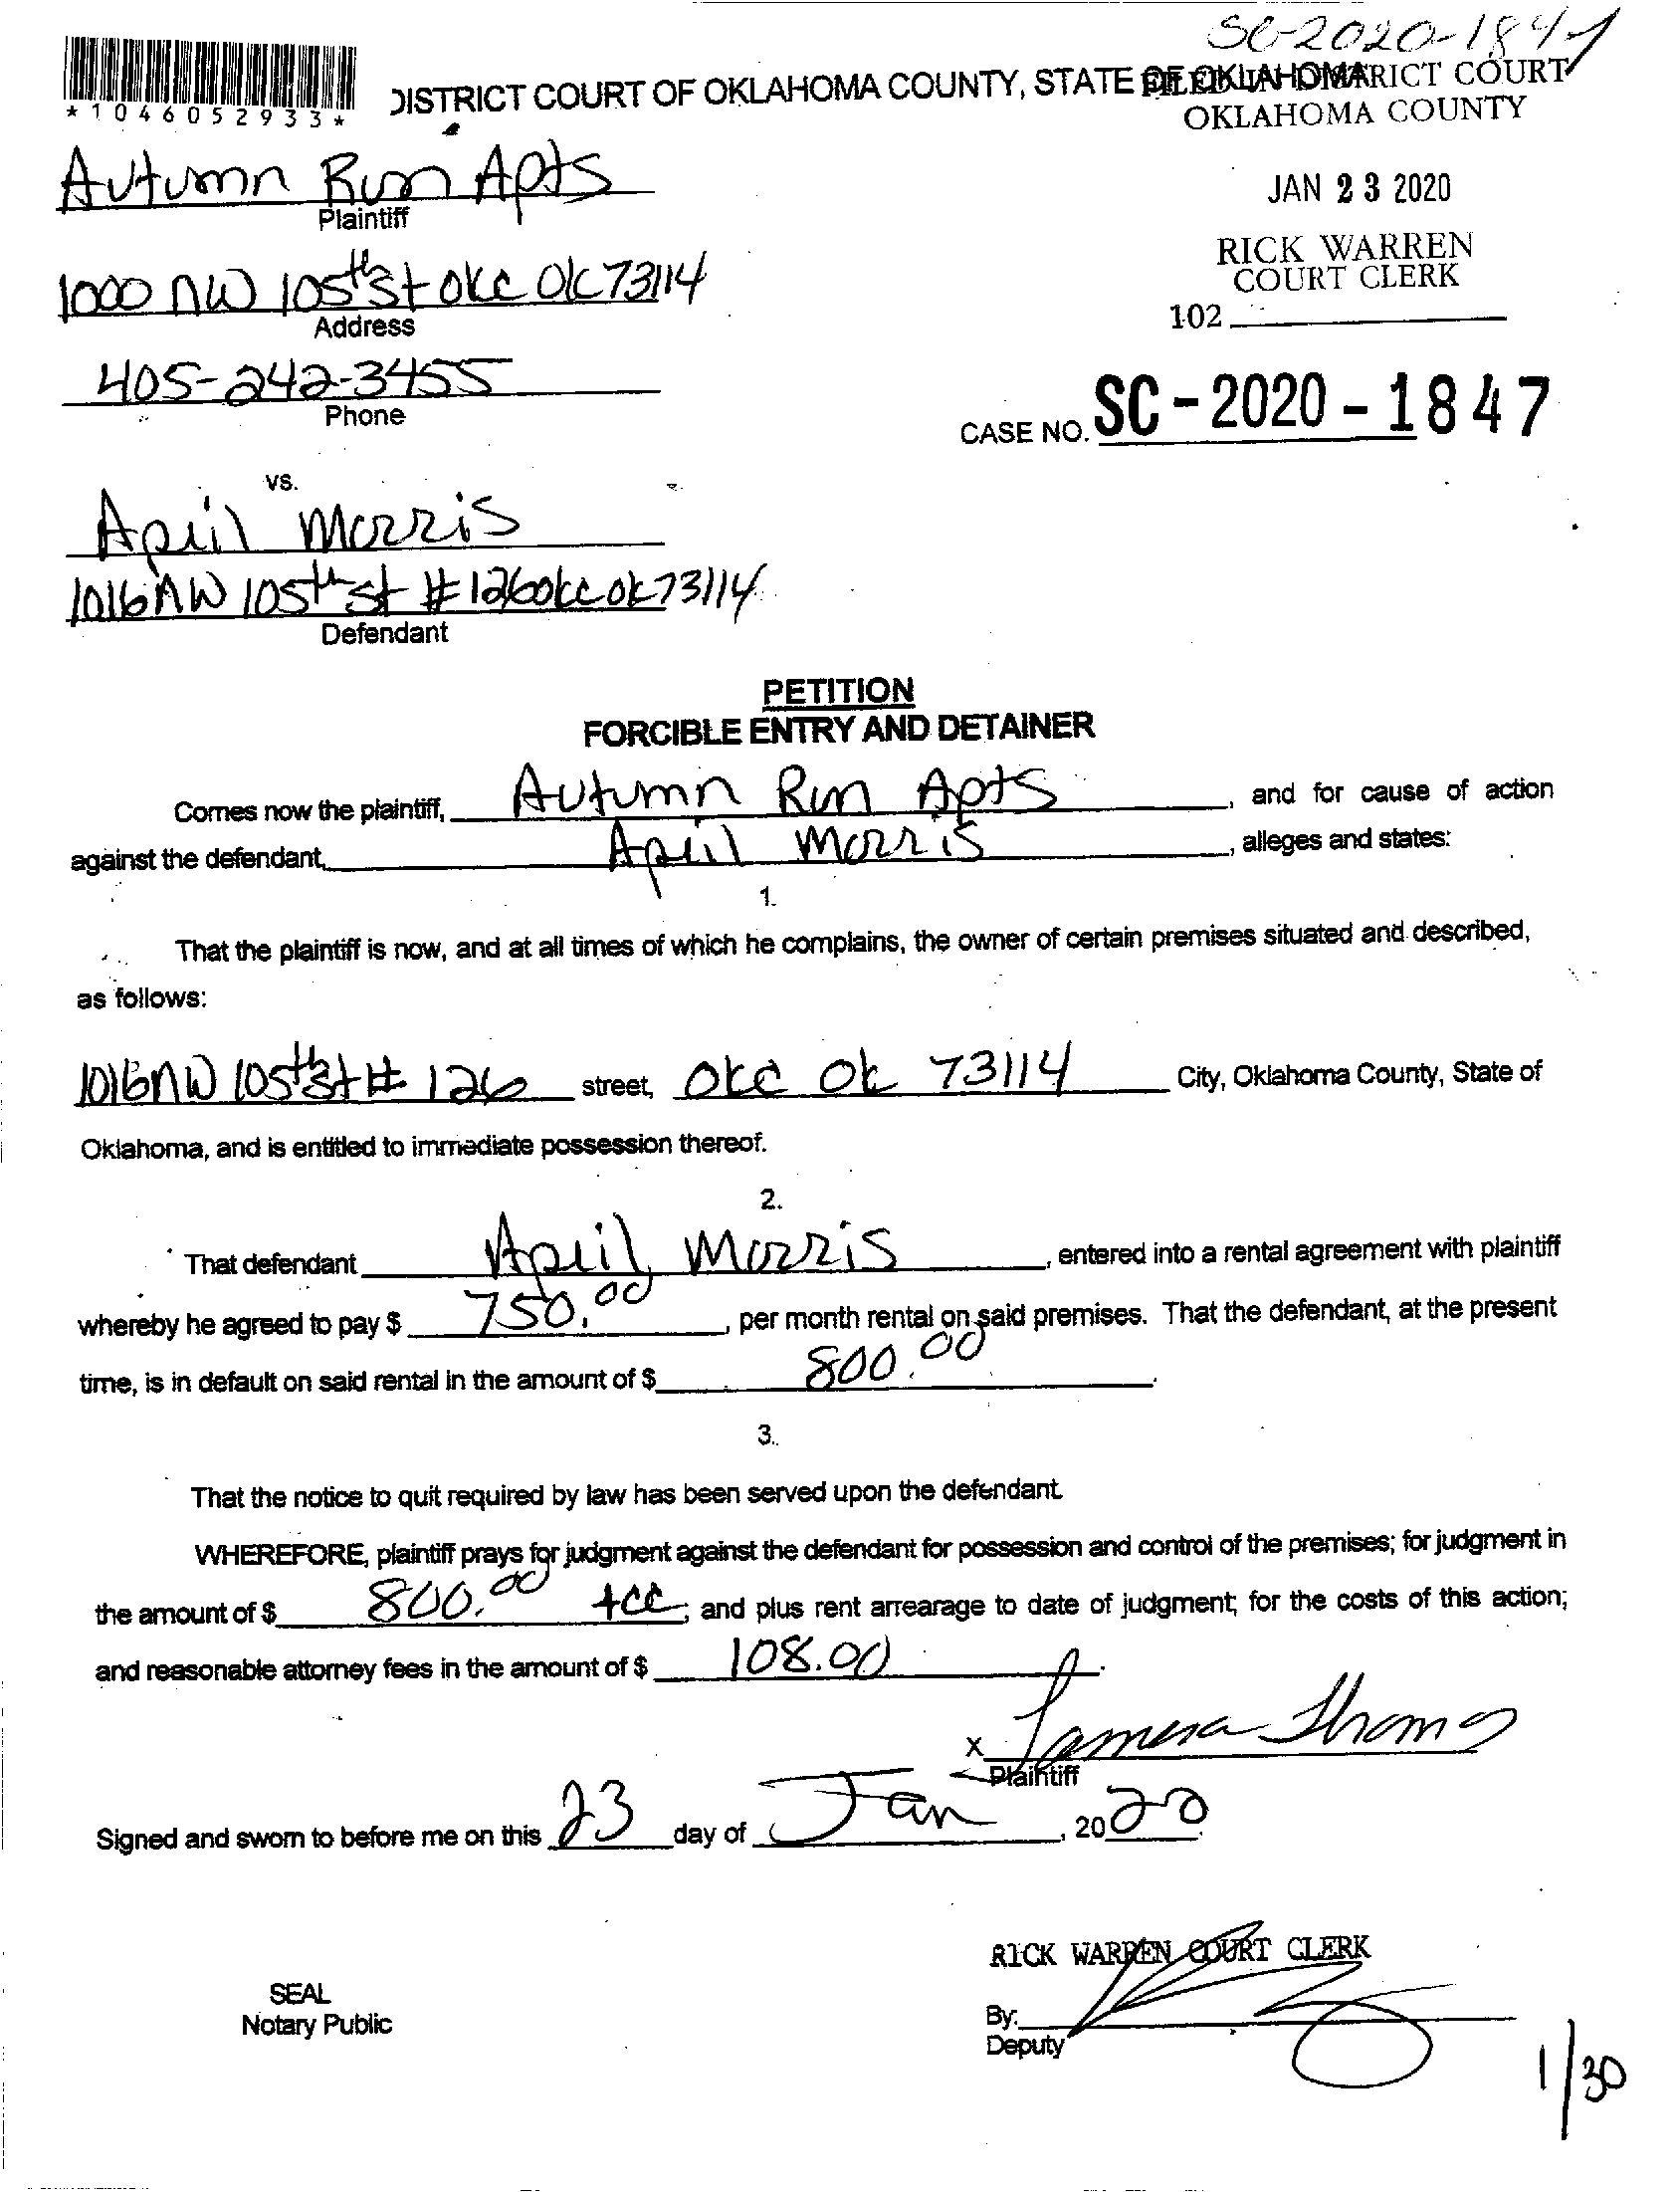 SC-2020-1847
*1046052933*
DISTRICT COURT OF OKLAHOMA COUNTY, STATE OF OKLAHOMA
FILED IN DISTRICT COURT
OKLAHOMA COUNTY
JAN 23 2020
RICK WARREN
COURT CLERK
102
Autumn Run Apts
Plaintiff
1000 NW 105th St OKC OK 73114
Address
405-242-3455
Phone
CASE NO. SC-2020-1847
vs.
April Morris
1016 NW 105th St #126 OKC OK 73114
Defendant
PETITION
FORCIBLE ENTRY AND DETAINER
Comes now the plaintiff, Autumn Run Apts, and for cause of action
against the defendant, April Morris, alleges and states:
1.
That the plaintiff is now, and at all times of which he complains, the owner of certain premises situated and described,
as follows:
1016 NW 105th St # 126 street, OKC OK 73114 City, Oklahoma County, State of
Oklahoma, and is entitled to immediate possession thereof.
2.
That defendant April Morris, entered into a rental agreement with plaintiff
whereby he agreed to pay $ 750.00, per month rental on said premises. That the defendant, at the present
time, is in default on said rental in the amount of $ 800.00.
3.
That the notice to quit required by law has been served upon the defendant.
WHEREFORE, plaintiff prays for judgment against the defendant for possession and control of the premises; for judgment in
the amount of $ 800.00 +CC; and plus rent arrearage to date of judgment; for the costs of this action;
and reasonable attorney fees in the amount of $ 108.00.
X Tamera Thomas
Plaintiff
Signed and sworn to before me on this 23 day of Jan, 2020
RICK WARREN COURT CLERK
SEAL
Notary Public
By:
Deputy
1/30